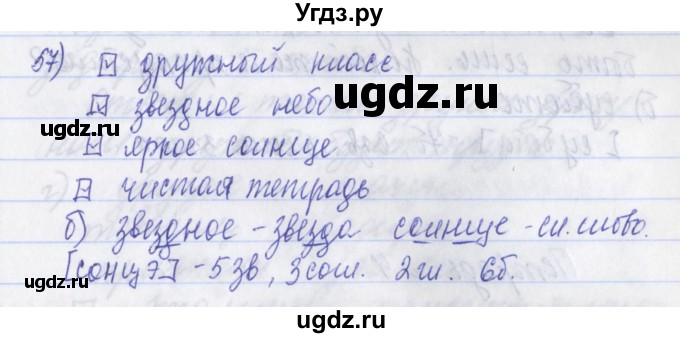 Угдз.ру
57) ☑ дружный класс
☑ звездное небо
ugdz.ru
ugdz.ru
☑ яркое солнце
ugdz.ru
☑ чистая тетрадь
б) звездное - звезда солнце - сл. слово.
[сонцэ] - 5 зв, 3 согл. 2 гл. 6 б.
ugdz.ru
ugdz.ru
ugdz.ru